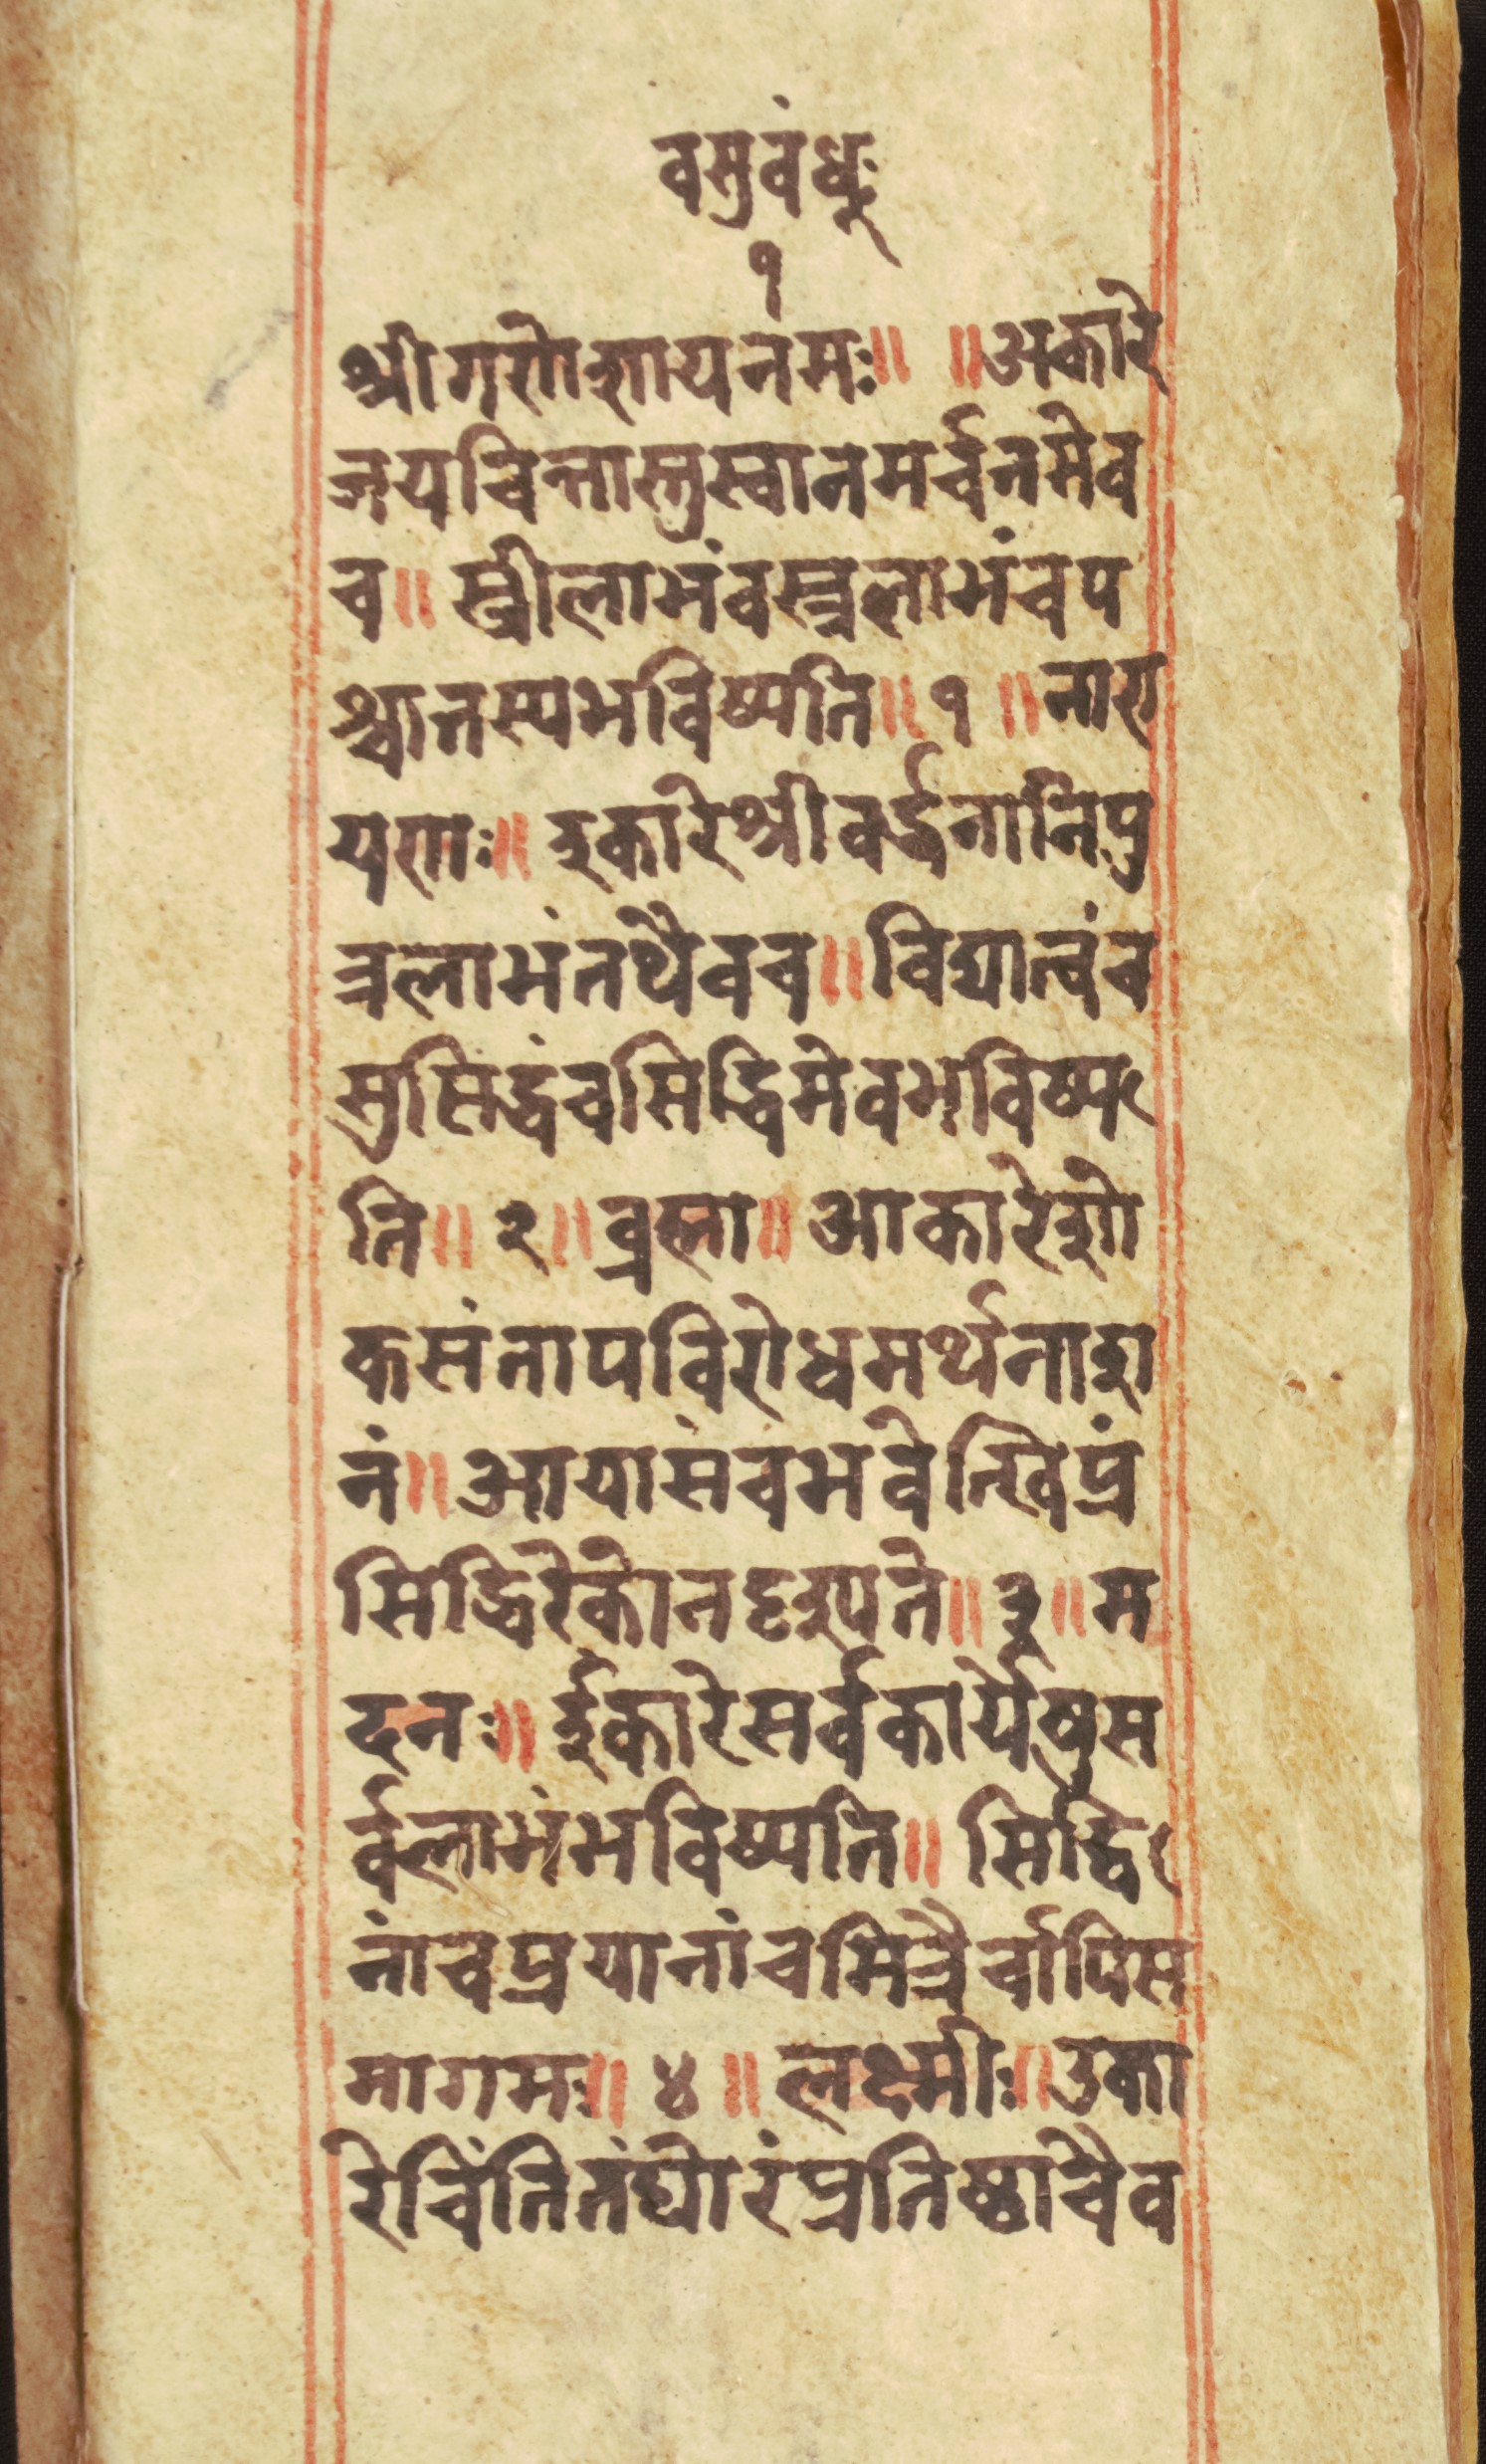 वसुबंधुः
१
श्रीगणेशायनमः॥ ॥अकारे
जयचिन्तास्तुस्वानमर्चनमेव
च॥ स्त्रीलाभंवस्त्रलाभंचप
श्चात्तस्यभविष्यति॥१॥नारा
यणः॥ इकारेश्रीवर्द्धनानिपु
त्रलाभंतथैवच॥विद्यात्वंच
सुसिद्धंचसिद्धिमेवभविष्य
ति॥२॥ब्रह्मा॥आकारेशो
कसंतापविरोधमर्थनाश
नं॥आयासंचभवेत्खिप्रं
सिद्धिरेकोनदृश्यते॥३॥म
दनः॥ ईकारेसर्वकार्येषुस
र्वलाभंभविष्यति॥सिद्धि
नांचप्रयानांचमित्रैर्चापिस
मागमः॥४॥लक्ष्मीः॥उका
रेचिंतितंघोरंप्रतिष्ठाचैव